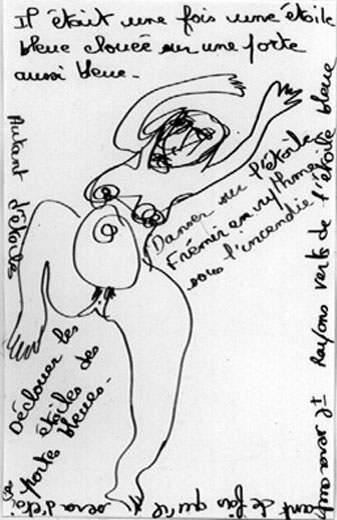 Il était une fois une étoile
bleue clouée sur une porte
aussi bleue.
Danser sur l'étoile
Frémir en rythme
sous l'incendie
Rayons verts de l'étoile bleue
Autant d'étoiles
Déclouer les
étoiles des
porte bleues.
Il sera aut
ant de fois qu'il sera d'étoi
les